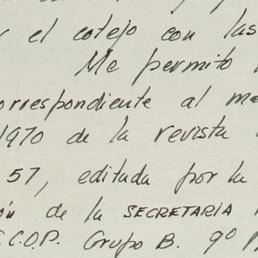 el cotejo con las
Me permito
correspondiente al
1970 de la revista
57, editada por la
de la SECRETARIA
C.O.P. Grupo B. 9º